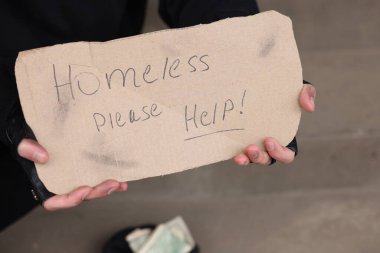 Homeless
please Help!